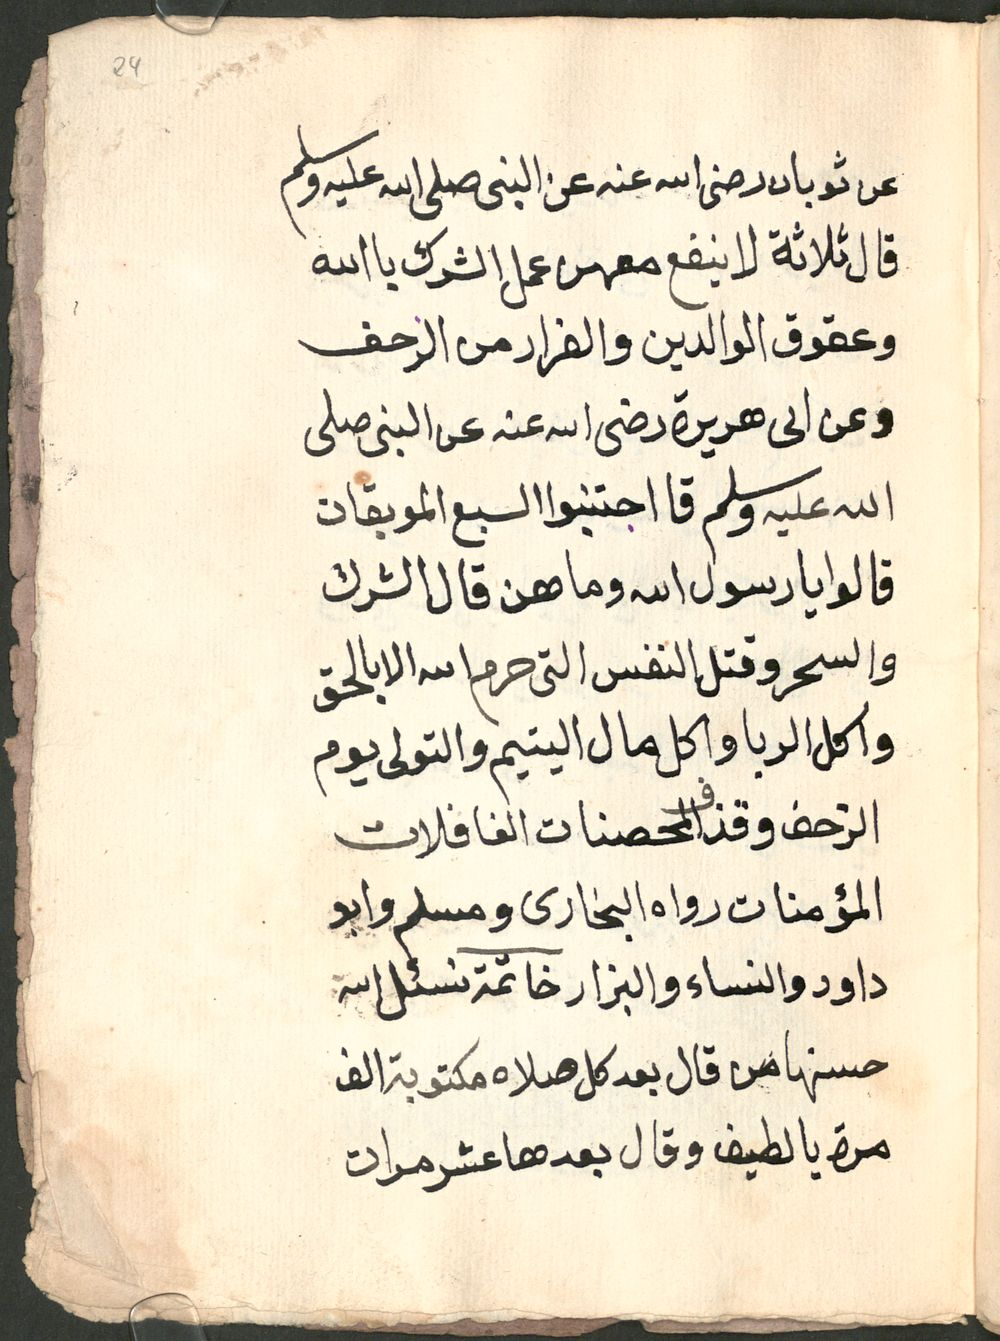 24
عن ثوبان رضى الله عنه عن النبى صلى الله عليه وسلم
قال ثلاثة لا ينفع معهن عمل الشرك باالله
وعقوق الوالدين والفرار من الزحف
وعن ابى هريرة رضى الله عنه عن النبى صلى
الله عليه وسلم قا اجتنبوا السبع الموبقات
قالوا يا رسول الله وما هن قال الشرك
والسحر وقتل النفس التى حرم الله الا بالحق
واكل الربا واكل مال اليتيم والتولى يوم
الزحف وقذف المحصنات الغافلات
المؤمنات رواه البخارى ومسلم وابو
داود والنساء والبزار خاتمة نسئل الله
حسنها من قال بعد كل صلاه مكتوبة الف
مرة يا لطيف وقال بعدها عشر مرات